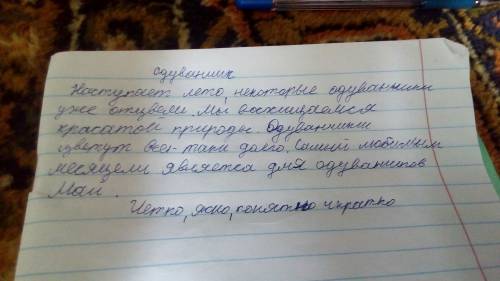 Одуванчик
Наступает лето, некоторые одуванчики
уже отцвели. Мы восхищаемся
красатой природы. Одуванчики
цветут всё-таки долго. Самым любимым
месяцем является для одуванчиков
Май.
Четко, ясно, понятно и кратко